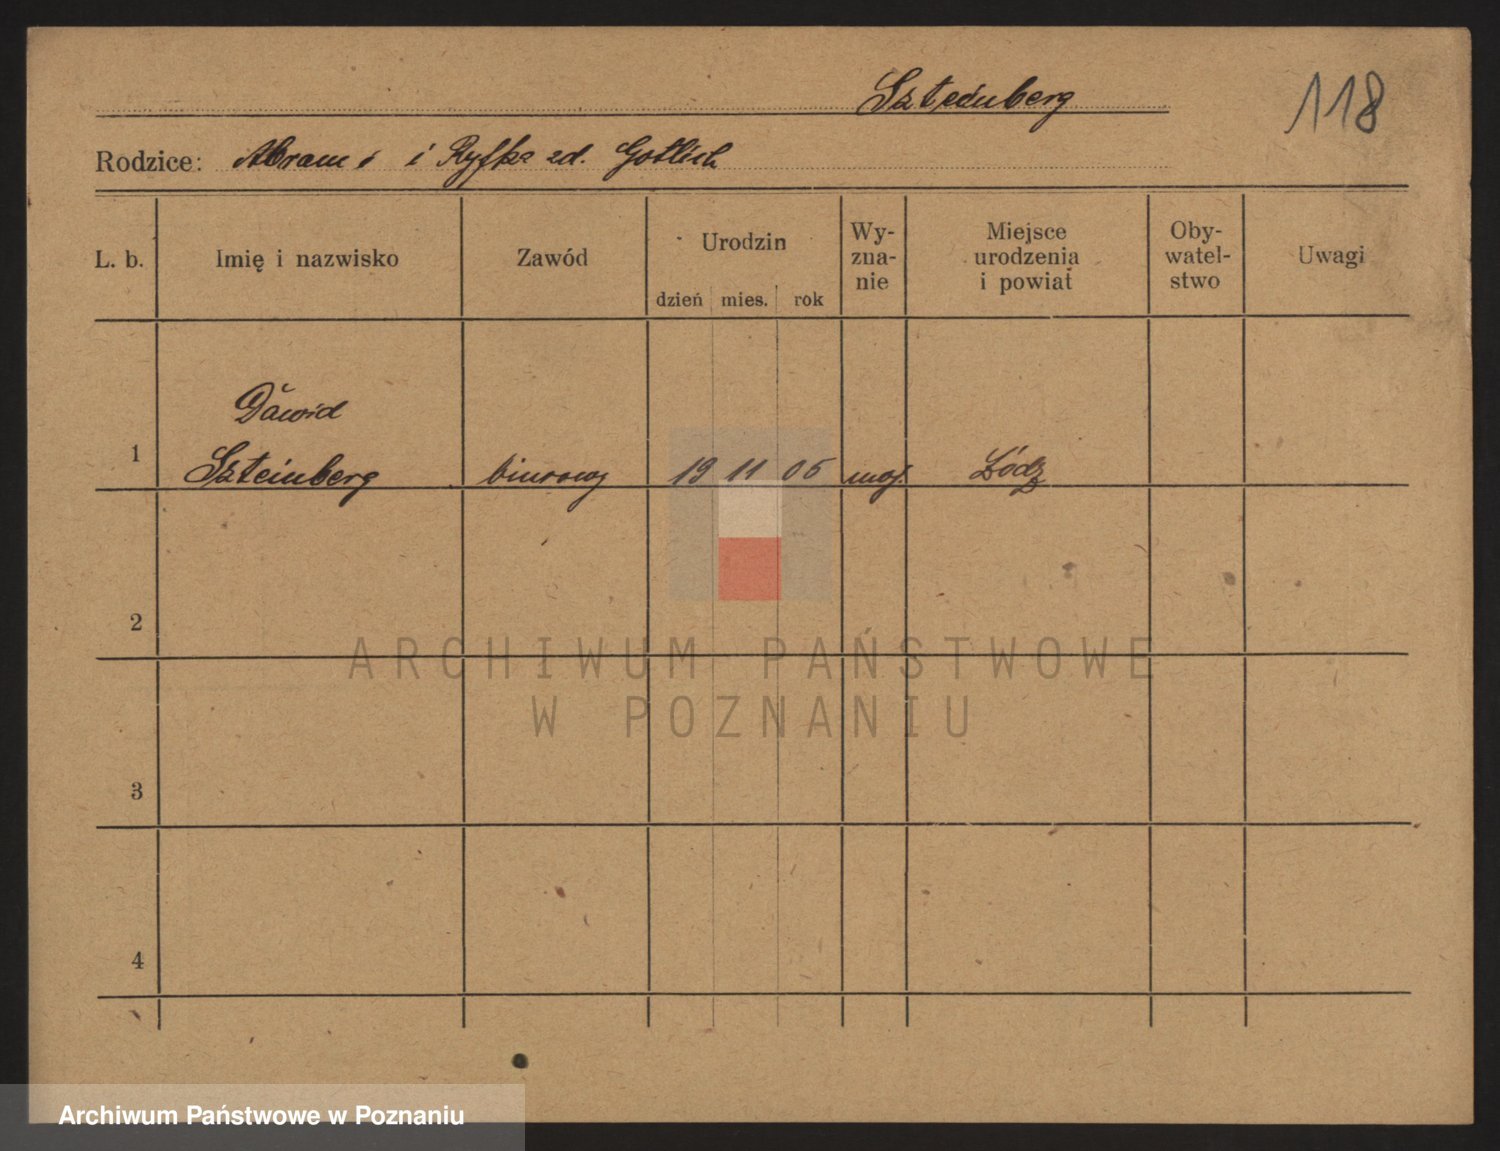 Szteinberg
118
Rodzice: Abram i Ryfka zd. Gotlieb
L. b. Imię i nazwisko Zawód Urodzin Wy- Miejsce Oby- Uwagi
zna- urodzenia watel-
nie i powiat stwo
dzień mies. rok
Dawid
1 Szteinberg biurowy 19 11 06 moj. Łódź
2
3
4
ARCHIWUM PAŃSTWOWE
W POZNANIU
Archiwum Państwowe w Poznaniu